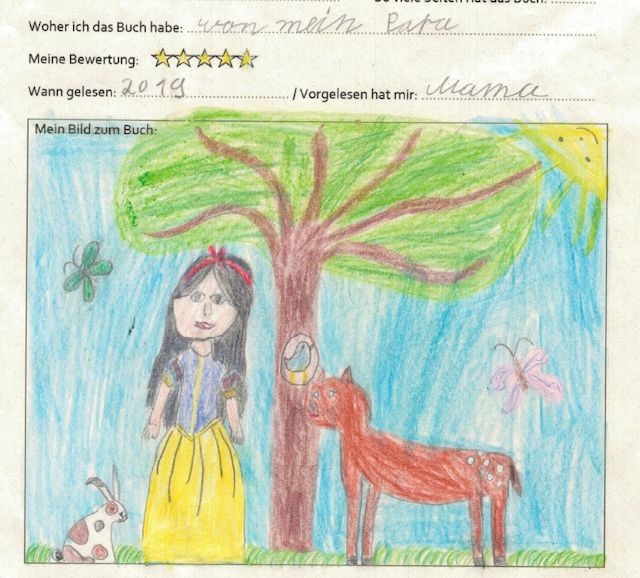 So viele Seiten hat das Buch:
Woher ich das Buch habe: von mein Papa
Meine Bewertung:
Wann gelesen: 2019 / Vorgelesen hat mir: Mama
Mein Bild zum Buch: